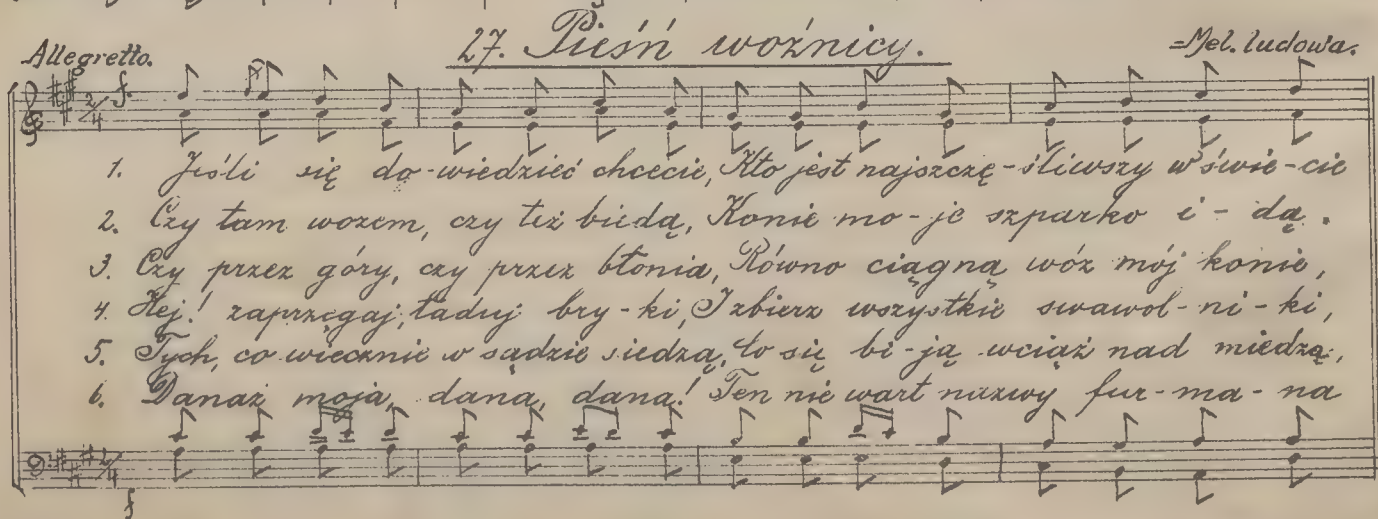 27. Pieśń woźnicy.
Allegretto.
Mel. ludowa.
2/4 f.
1. Jeśli się do-wiedzieć chcecie, Kto jest najszczę-śliwszy w świe-cie
2. Czy tam wozem, czy też biedą, Konie mo-je szparko i-dą.
3. Czy przez góry, czy przez błonia, Równo ciągną wóz mój konie,
4. Hej! zaprzęgaj, ładuj bry-ki, I zbierz wszystkie swawol-ni-ki,
5. Tych, co wiecznie w sądzie siedzą, to się bi-ją wciąż nad miedzą,
6. Danaż moja, dana, dana! Ten nie wart nazwy fur-ma-na
2/4
f